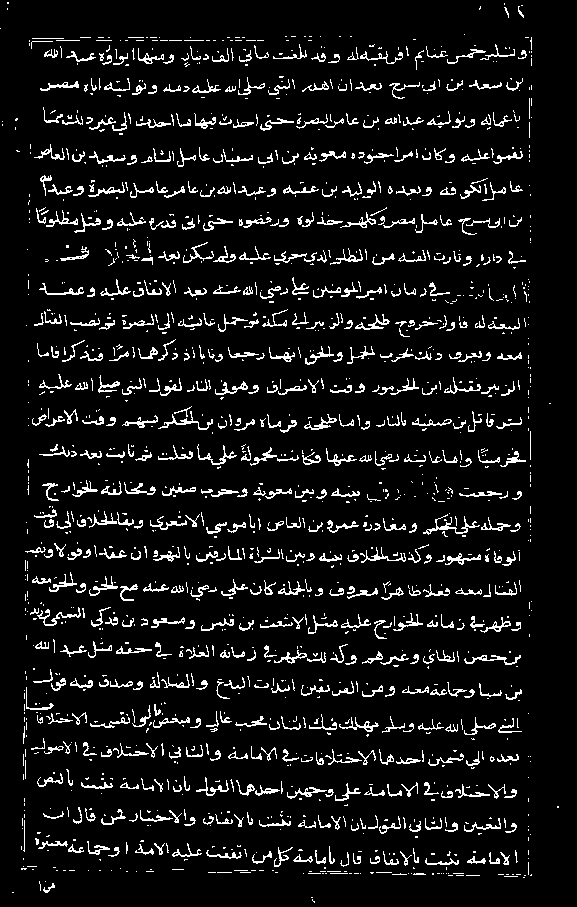 ١٢
وتسليم خمس غنايم افريقية له وقد بلغت مائتي الف دينار ومنها ايواؤه عبد الله
بن سعد بن ابي سرح بعد ان اهدر النبي صلى الله عليه دمه وتوليته اياه مصر
باعمالها وتوليته عبد الله بن عامر البصرة حتى احدث فيها ما احدث الي غير ذلك مما
نقموا عليه وكان امرا جنوده معوية بن ابي سفيان عامل الشام وسعيد بن العاص
عامل الكوفه وبعده الوليد بن عقبه وعبد الله بن عامر عامل البصرة وعبد الله
بن ابي سرح عامل مصر وكلهم خذلوه ورفضوه حتى اتي قدره عليه وقتل مظلوما
في داره وثارت الفتنه من الظلم الذي جري عليه ولم تسكن بعد الخلاف
العاشر في زمان امير المومنين علي رضي الله عنه بعد الاتفاق عليه وعقد
البيعة له فاولا خروج طلحة والزبير الي مكة ثم حمل عائشة الي البصرة ثم نصب القتال
معه ويعرف ذلك بحرب الجمل والحق انهما رجعا وتابا اذ ذكرهما امرا فتذكرا فاما
الزبير فقتله ابن الجرموز وقت الانصراف وهو في النار لقول النبي صلى الله عليه
بشر قاتل بن صفيه بالنار واما طلحة فرماه مروان بن الحكم بسهم وقت الاعراض
فخر ميتا واما عائشة رضي الله عنها فكانت محمولة علي ما فعلت ثم تابت بعد ذلك
ورجعت والخلاف بينه وبين معوية وحرب صفين ومخالفة الخوارج
وحمله علي التحكيم ومغادرة عمرو بن العاص اباموسي الاشعري وبقا الخلاف الى وقت
الوفاة مشهور وكذلك الخلاف بينه وبين الشراة المارقين بالنهروان عقدا وقولا ونصب
القتال معه فعلا ظاهرا معروف وبالجملة كان علي رضي الله عنه مع الحق والحق معه
وظهر في زمانه الخوارج عليه مثل الاشعث بن قيس ومسعود بن فدكي التميمي وزيد
بن حصن الطائي وغيرهم وكذلك ظهر في زمانه الغلاة في حقه مثل عبد الله
بن سبا وجماعة معه ومن الفريقين ابتدات البدع والضلالة وصدق فيه قول
النبي صلي الله عليه وسلم يهلك فيك اثنان محب غالي ومبغض قالي وانقسمت الاختلافات
بعده الي قسمين احدها الاختلافات في الامامة والثاني الاختلاف في الاصول
والاختلاف في الامامة علي وجهين احدها القول بان الامامة تثبت بالنص
والتعيين والثاني القول بان الامامة تثبت بالاتفاق والاختيار فمن قال ان
الامامة تثبت بالاتفاق قال بامامة كل من اتفقت عليه الامة او جماعة معتبرة
من ا